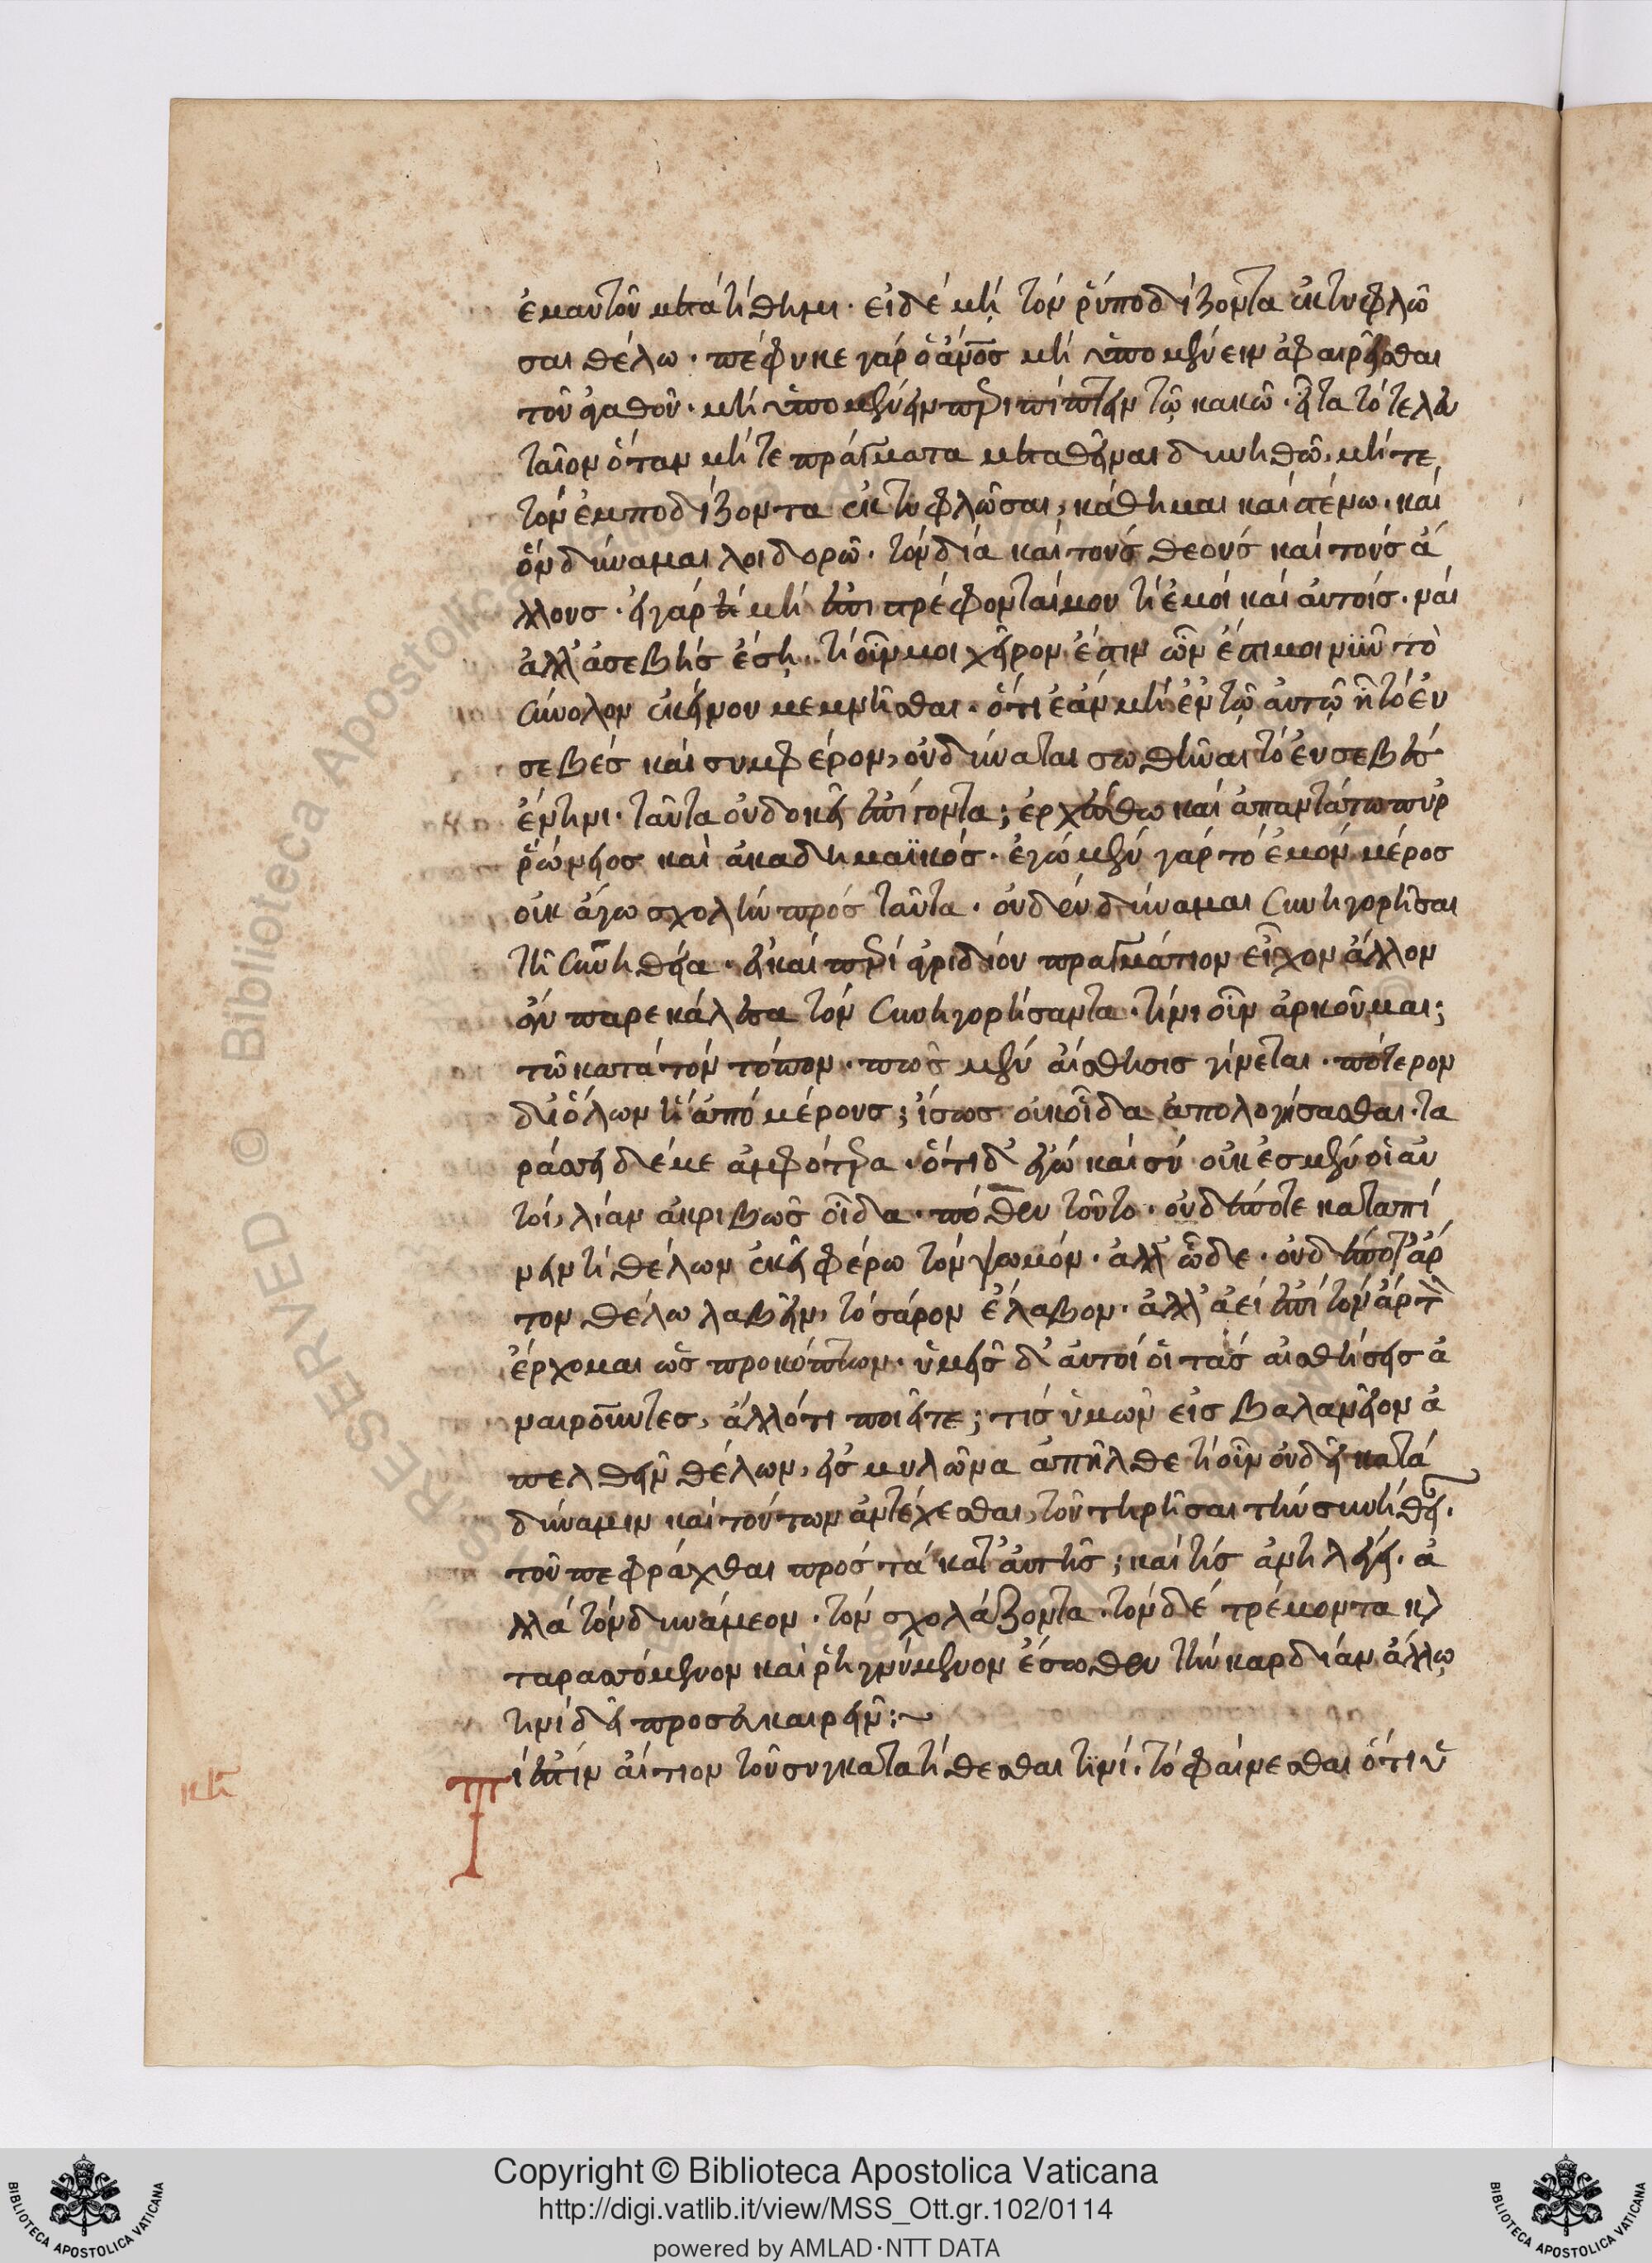 ἐμαυτοῦ μετατίθημι· εἰ δὲ μὴ τὸν ῥύποδίζοντα ἐκτυφλῶ
σαι θέλω· πέφυκε γὰρ ὁ ἄνος μὴ ὑπομένειν ἀφαιρεῖσθαι
τοῦ ἀγαθοῦ· μὴ ὑπομένειν περιπίπτειν τῷ κακῷ· εἶτα τὸ τελευ
ταῖον ὅταν μήτε πράγματα μεταθεῖναι δυνηθῶ, μήτε
τὸν ἐμποδίζοντα ἐκτυφλῶσαι, κάθημαι καὶ στένω· καὶ
ὃν δύναμαι λοιδορῶ· τὸν δία καὶ τοὺς θεοὺς καὶ τοὺς ἀ
λλους· εἰ γὰρ τι μὴ ἐπιτρέφονταί μου τί ἐμοὶ καὶ αὐτοῖς· ναὶ
ἀλλ' ἀσεβὴς ἔσῃ· τί οὖν μοι χεῖρον ἔστιν ὧν ἔστι μοι νῦν τὸ
σύνολον ἐκείνου μεμνῆσθαι· ὅτι ἐὰν μὴ ἐν τῷ αὐτῷ ἦ τὸ εὐ
σεβὲς καὶ συμφέρον, οὐ δύναται σωθῆναι τὸ εὐσεβὲς
ἔν τινι· ταῦτα οὐ δοκεῖ ἐπείγοντα; ἐρχέσθω καὶ ἀπαντάτω πυρ
ῥώνειος καὶ ἀκαδημαϊκός· ἐγὼ μὲν γὰρ τὸ ἐμὸν μέρος
οὐκ ἄγω σχολὴν πρὸς ταῦτα· οὐδὲν δύναμαι συνηγορῆσαι
τῇ συνηθεία· εἰ καὶ περὶ ἀγριδίου πραγμάτιον εἶχον ἄλλον
ἂν παρεκάλεσα τὸν συνηγορήσαντα· τίνι οὖν ἀρκοῦμαι;
τῷ κατὰ τὸν τόπον· πῶς μὲν αἴσθησις γίνεται· πότερον
δι' ὅλων ἢ ἀπὸ μέρους; ἴσως οὐκ οἶδα ἀπολογήσασθαι· τα
ράσσει δέ με ἀμφότερα· ὅτι δ' ἐγὼ καὶ σὺ οὐκ ἐσμὲν οἱ αὐ
τοί, λίαν ἀκριβῶς οἶδα· πόθεν τοῦτο· οὐδέποτε καταπί
νειν τι θέλων ἐκεῖ φέρω τὸν ψωμόν· ἀλλ' ὧδε· οὐδέποτ' ἄρ
τον θέλω λαβεῖν, τὸ σάρον ἔλαβον· ἀλλ' ἀεὶ ἐπὶ τὸν ἄρτ
ἔρχομαι ὡς προκόπτων· ὑμεῖς δ' αὐτοὶ οἱ τὰς αἰσθήσεις ἀ
ναιροῦντες, ἄλλό τι ποιεῖτε; τίς ὑμῶν εἰς βαλανεῖον ἀ
πελθεῖν θέλων, εἰς μυλῶνα ἀπῆλθε τί οὖν οὐ δεῖ κατὰ
δύναμιν καὶ τούτων ἀντέχεσθαι, τοῦ τηρῆσαι τὴν συνήθει·
τοῦ πεφράχθαι πρὸς τὰ κατ' αὐτῆς; καὶ τίς ἀντιλέγει· ἀ
λλὰ τὸν δυνάμεον· τὸν σχολάζοντα· τὸν δὲ τρέμοντα κ
ταρασσόμενον καὶ ῥηγνύμενον ἔσωθεν τὴν καρδίαν ἄλλῳ
τινὶ δεῖ προσευκαιρεῖν:~
Τί ἐστὶν αἴτιον τοῦ συγκατατίθεσθαι τινί· τὸ φαίνεσθαι ὅτι ὑ
κη
Copyright © Biblioteca Apostolica Vaticana
http://digi.vatlib.it/view/MSS_Ott.gr.102/0114
powered by AMLAD·NTT DATA
BIBLIOTECA APOSTOLICA VATICANA
BIBLIOTECA APOSTOLICA VATICANA